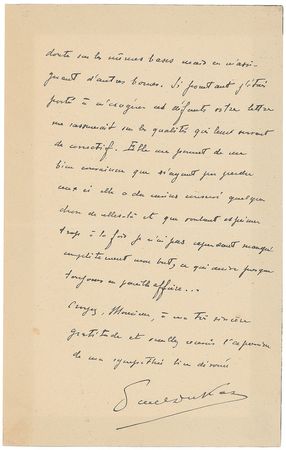 doute sur les mêmes bases mais en m'assi-
gnant d'autres bornes. Si pourtant j'étais
porté à m'exagérer ces défauts votre lettre
me rassurerait sur les qualités qui leur servent
de correctif. Elle me permet de me
bien convaincre que n'ayant pu perdre
ceux-ci elle a du moins conservé quelque
chose de celles-là et que voulant exprimer
trop à la fois je n'ai pas cependant manqué
complètement mon but, ce qui arrive presque
toujours en pareille affaire...
Croyez, Monsieur, à ma très sincère
gratitude et veuillez recevoir l'expression
de ma sympathie bien dévouée
Paul Dukas